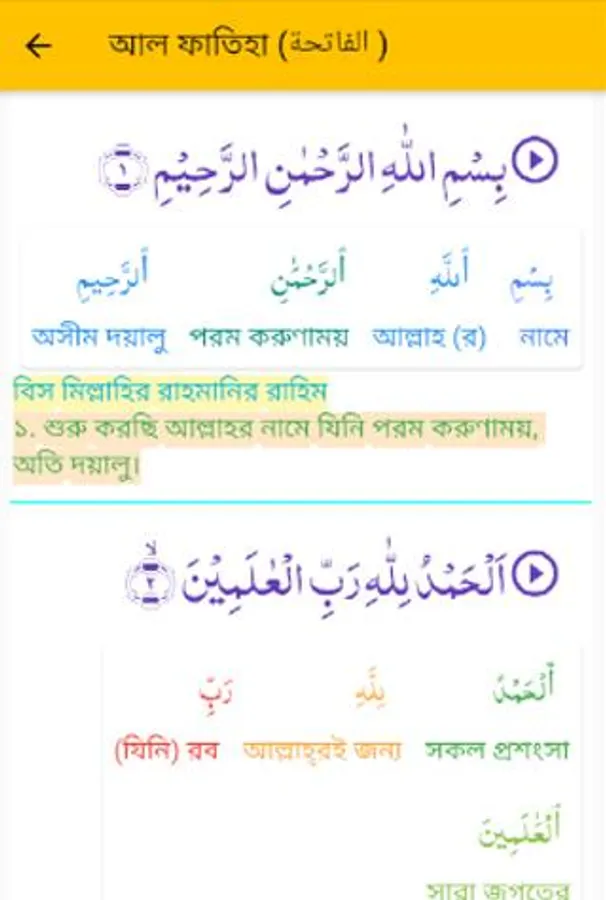 আল ফাতিহা (الفاتحة )
بِسْمِ اللّٰهِ الرَّحْمٰنِ الرَّحِيْمِ ۝١
بِسْمِ ٱللَّهِ ٱلرَّحْمَٰنِ ٱلرَّحِيمِ
নামে আল্লাহ (র) পরম করুণাময় অসীম দয়ালু
বিস মিল্লাহির রাহমানির রাহিম
১. শুরু করছি আল্লাহর নামে যিনি পরম করুণাময়,
অতি দয়ালু।
اَلْحَمْدُ لِلّٰهِ رَبِّ الْعٰلَمِيْنَ ۙ۝٢
ٱلْحَمْدُ لِلَّهِ رَبِّ
সকল প্রশংসা আল্লাহ্‌রই জন্য (যিনি) রব
ٱلْعَٰلَمِينَ
সারা জগতের